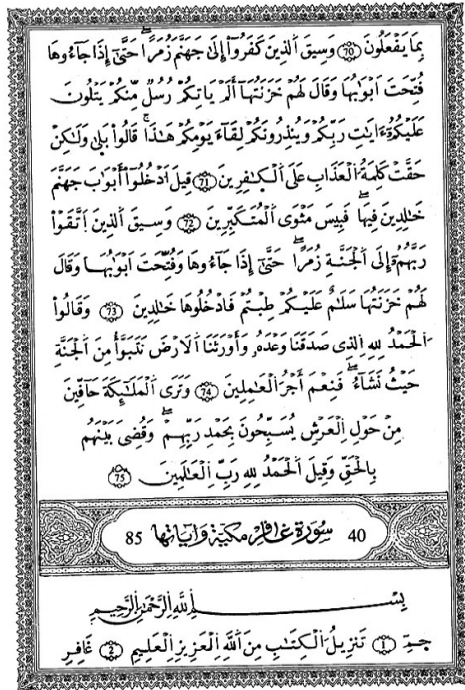 بِمَا يَفْعَلُونَ 70 وَسِيقَ اَلذِينَ كَفَرُوٓاْ إِلَىٰ جَهَنَّمَ زُمَراًۖ حَتَّىٰٓ إِذَا جَآءُوهَا
فُتِّحَتَ اَبْوَٰبُهَا وَقَالَ لَهُمْ خَزَنَتُهَآ أَلَمْ يَاتِكُمْ رُسُلٌ مِّنكُمْ يَتْلُونَ
عَلَيْكُمُۥٓ ءَايَٰتِ رَبِّكُمْ وَيُنذِرُونَكُمْ لِقَآءَ يَوْمِكُمْ هَٰذَاۚ قَالُواْ بَلَىٰ وَلَٰكِنْ
حَقَّتْ كَلِمَةُ اُلْعَذَابِ عَلَى اَلْكَٰفِرِينَ 71 قِيلَ اَدْخُلُوٓاْ أَبْوَٰبَ جَهَنَّمَ
خَٰلِدِينَ فِيهَاۖ فَبِيسَ مَثْوَى اَلْمُتَكَبِّرِينَ 72 وَسِيقَ اَلذِينَ اَتَّقَوْاْ
رَبَّهُمُۥٓ إِلَى اَلْجَنَّةِ زُمَراًۖ حَتَّىٰٓ إِذَا جَآءُوهَا وَفُتِّحَتَ اَبْوَٰبُهَا وَقَالَ
لَهُمْ خَزَنَتُهَا سَلَٰمٌ عَلَيْكُمْ طِبْتُمْ فَادْخُلُوهَا خَٰلِدِينَ 73 وَقَالُواْ
اُلْحَمْدُ لِلهِ اِلذِي صَدَقَنَا وَعْدَهُۥ وَأَوْرَثَنَا اَلَارْضَ نَتَبَوَّأُ مِنَ اَلْجَنَّةِ
حَيْثُ نَشَآءُۖ فَنِعْمَ أَجْرُ اُلْعَٰمِلِينَ 74 وَتَرَى اَلْمَلَٰٓئِكَةَ حَآفِّينَ
مِنْ حَوْلِ اِلْعَرْشِ يُسَبِّحُونَ بِحَمْدِ رَبِّهِمْۖ وَقُضِيَ بَيْنَهُم
بِالْحَقِّ وَقِيلَ اَلْحَمْدُ لِلهِ رَبِّ اِلْعَٰلَمِينَ 75
40 سُورَةُ غَافِرٍ مَكِّيَّةٌ وَءَايَاتُهَا 85
بِسْمِ اِللَّهِ اِلرَّحْمَٰنِ اِلرَّحِيمِ
حَمِٓ 1 تَنزِيلُ اُلْكِتَٰبِ مِنَ اَللَّهِ اِلْعَزِيزِ اِلْعَلِيمِ 2 غَافِرِ